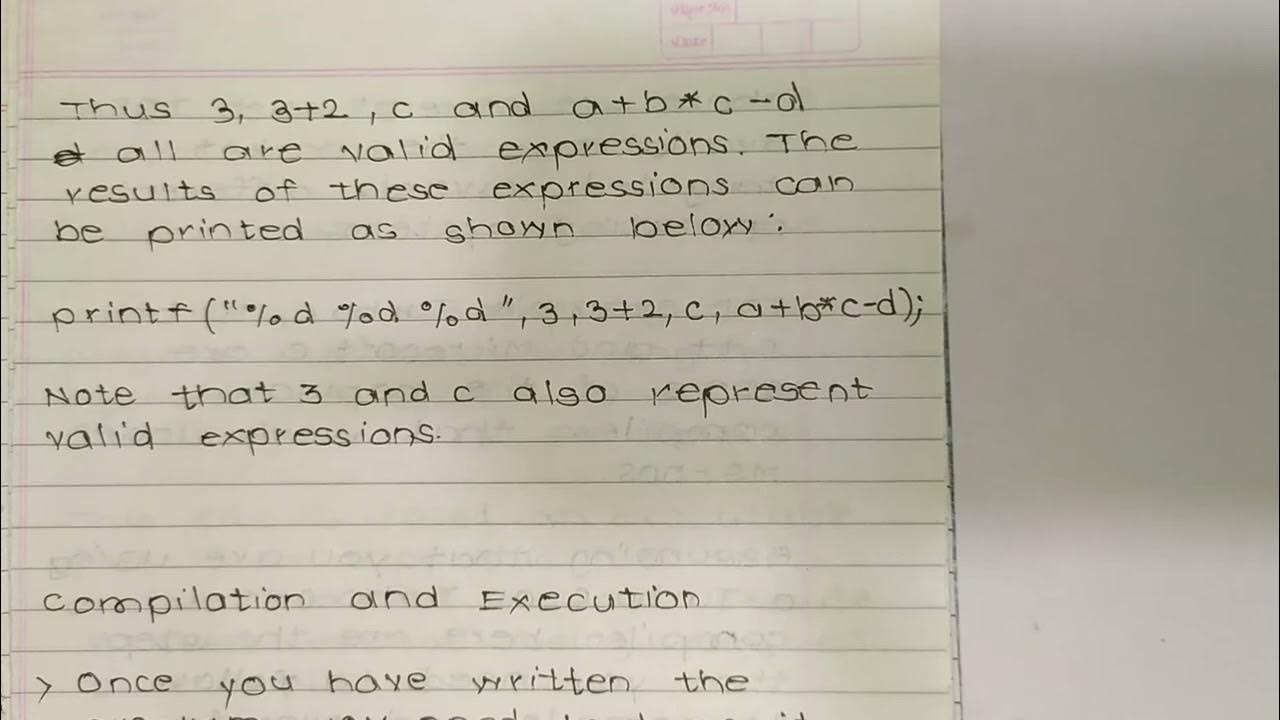 Thus 3, 3+2, c and a+b*c-d
all are valid expressions. The
results of these expressions can
be printed as shown below:
printf("%d %d %d", 3, 3+2, c, a+b*c-d);
Note that 3 and c also represent
valid expressions.
Compilation and Execution
> Once you have written the